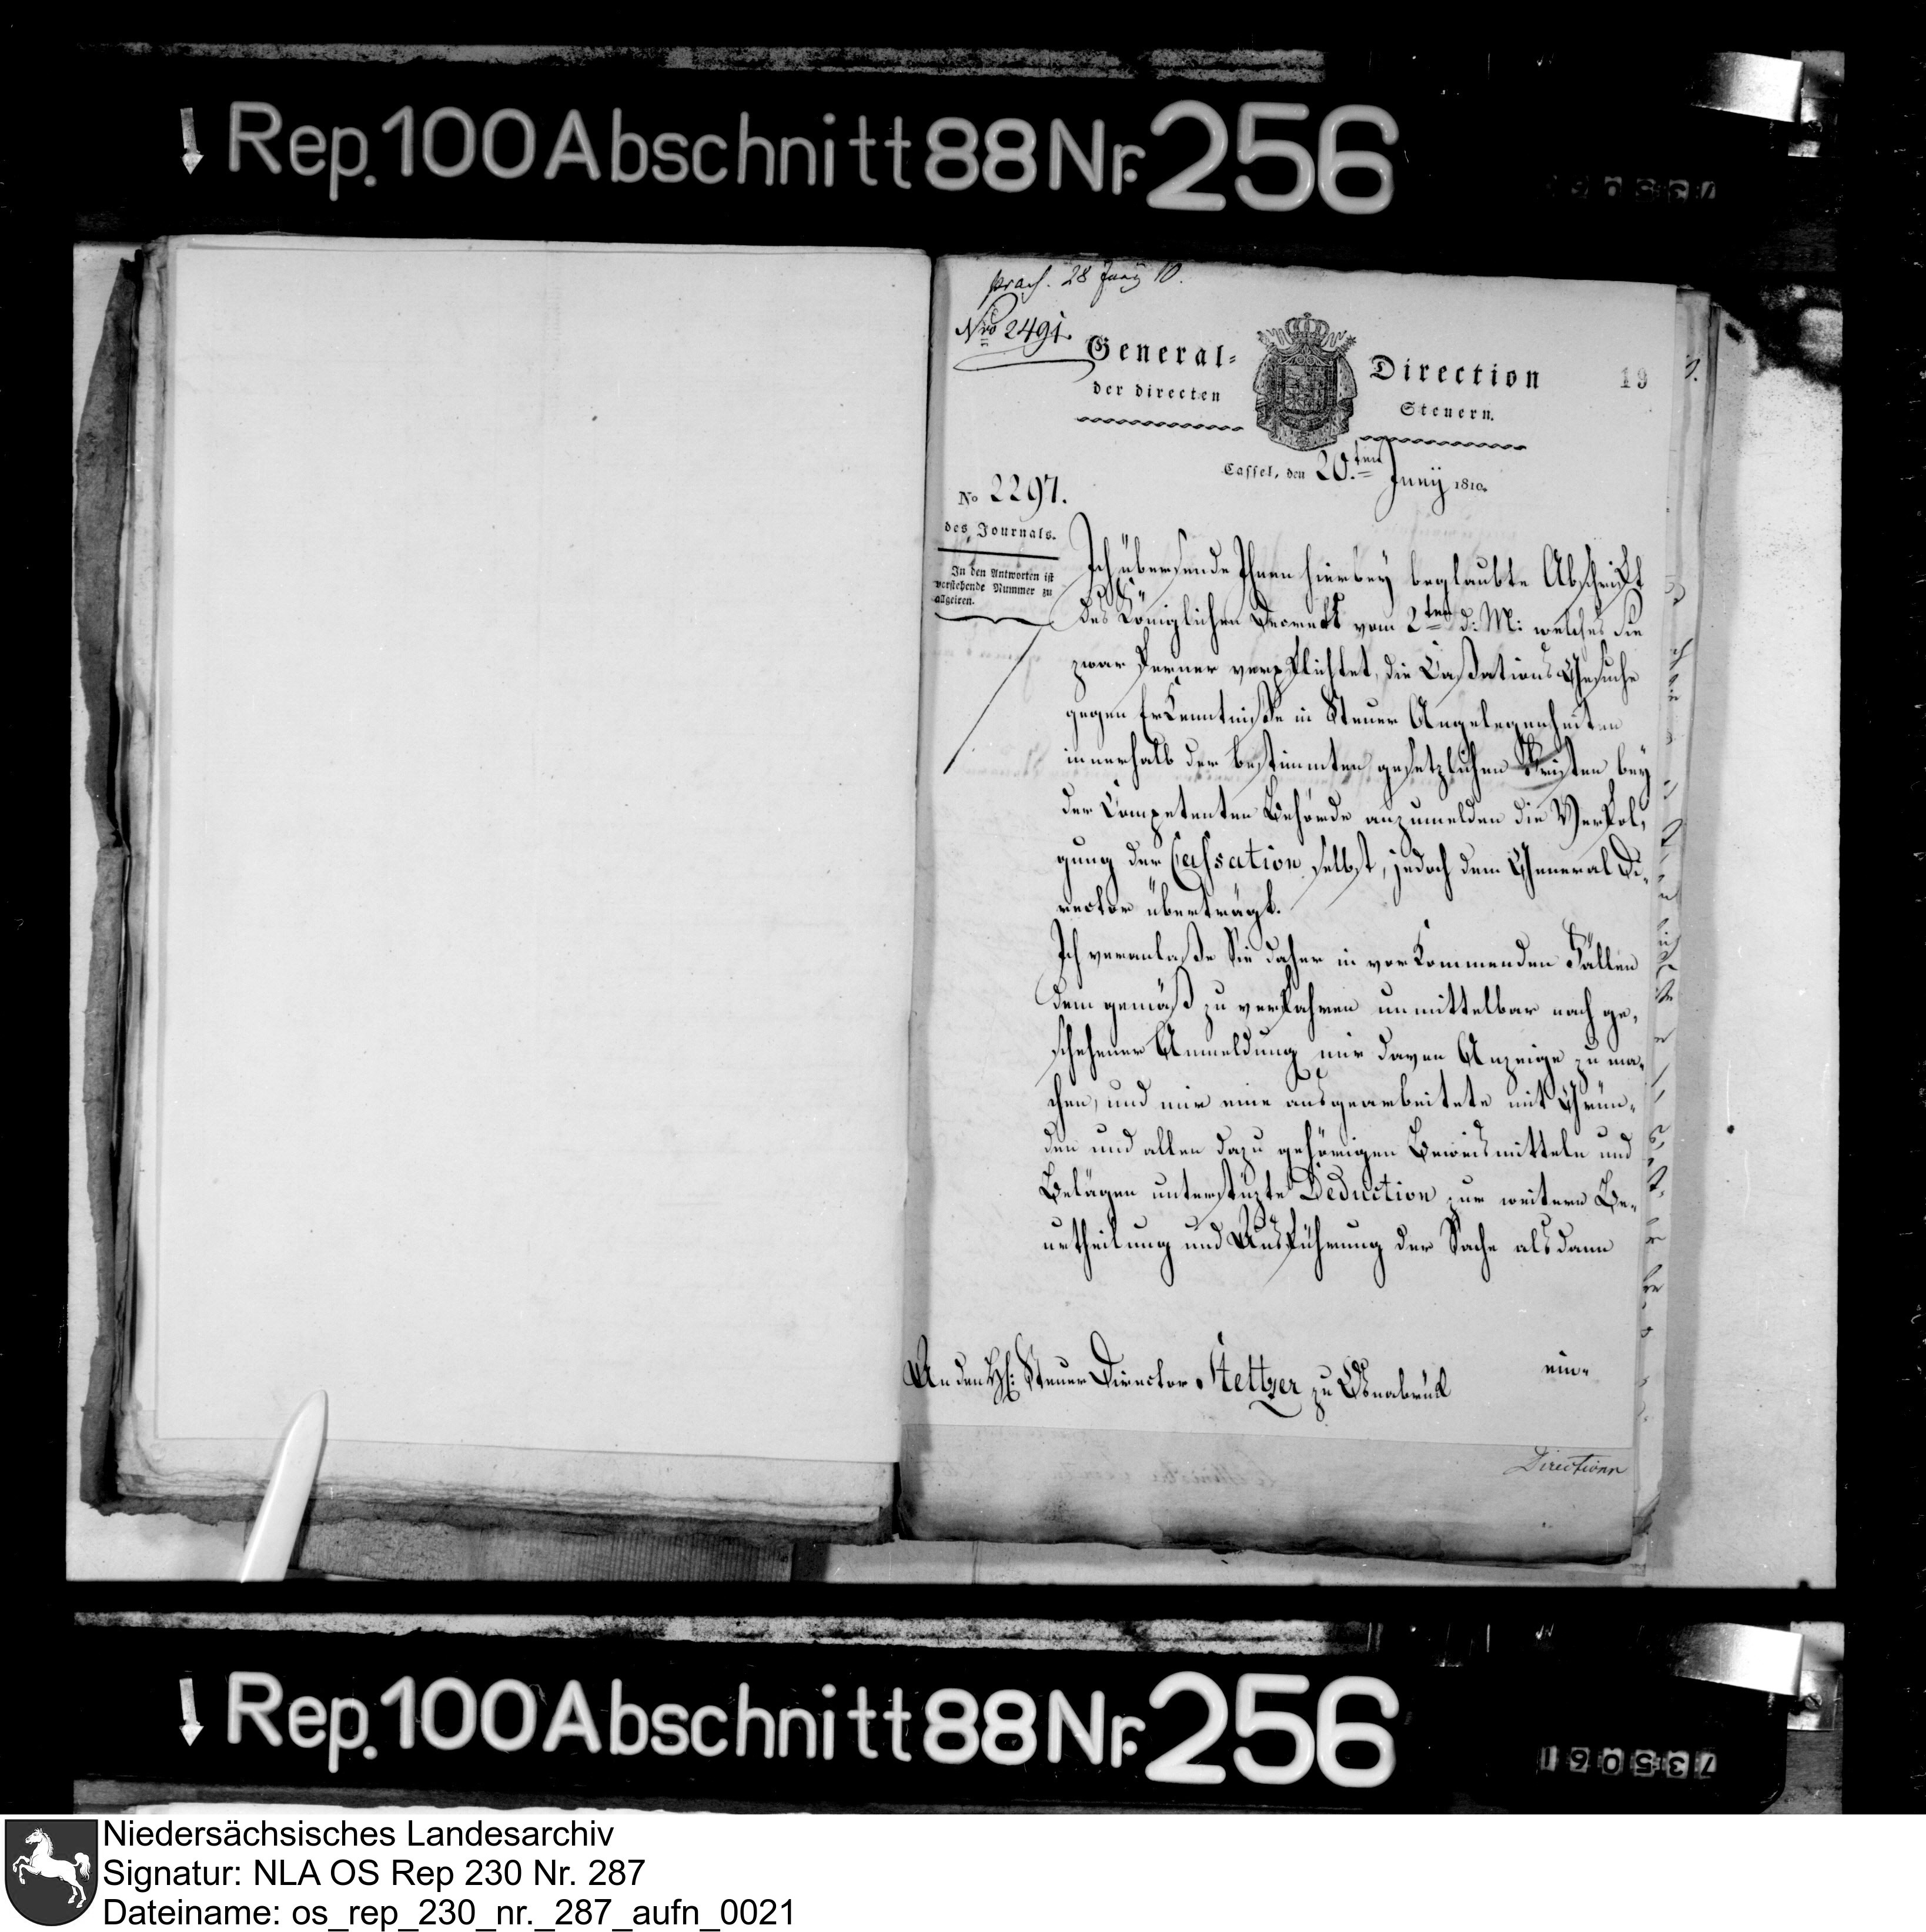 Rep. 100 Abschnitt 88 Nr. 256
praes. 28 Juny 10.
Nro 2491.
General-
Direction
der directen
Steuern.
19
Cassel, den 20.ten Junÿ 1810.
No 2297.
des Journals.
In den Antworten ist
vorstehende Nummer zu
allgeiren.
Ich übersende Ihnen hierbey beglaubte Abschrift
des Königlichen Decrets vom 2ten d: M: welches Sie
zwar ferner verpflichtet, die Caßations Gesuche
gegen Erkenntniße in Steuer Angelegenheiten
innerhalb der bestimmten gesetzlichen Fristen bey
der Competenten Behörde anzumelden die Verfol-
gung der Cassation selbst, jedoch dem General Di-
rector überträgt.
Ich veranlaße Sie daher in vorkommenden Fällen
dem gemäß zu verfahren unmittelbar nach ge-
schehener Anmeldung mir davon Anzeige zu ma-
chen, und mir eine ausgearbeitete mit Grün-
den und allen dazu gehörigen Beweismitteln und
Belägen unterstüzte Deduction zur weitern Be-
urtheilung und Ausführung der Sache alsdann
ein-
An den H: Steuer Director Stettzer zu Osnabrück
Directionn
Rep. 100 Abschnitt 88 Nr. 256
735061
Niedersächsisches Landesarchiv
Signatur: NLA OS Rep 230 Nr. 287
Dateiname: os_rep_230_nr._287_aufn_0021